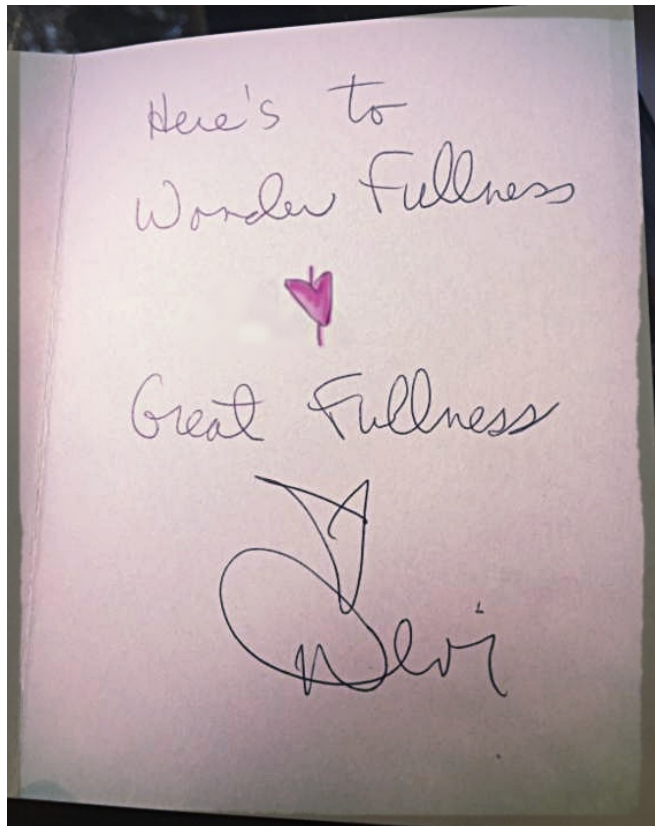 Here's to
Wonder Fullness
Great Fullness